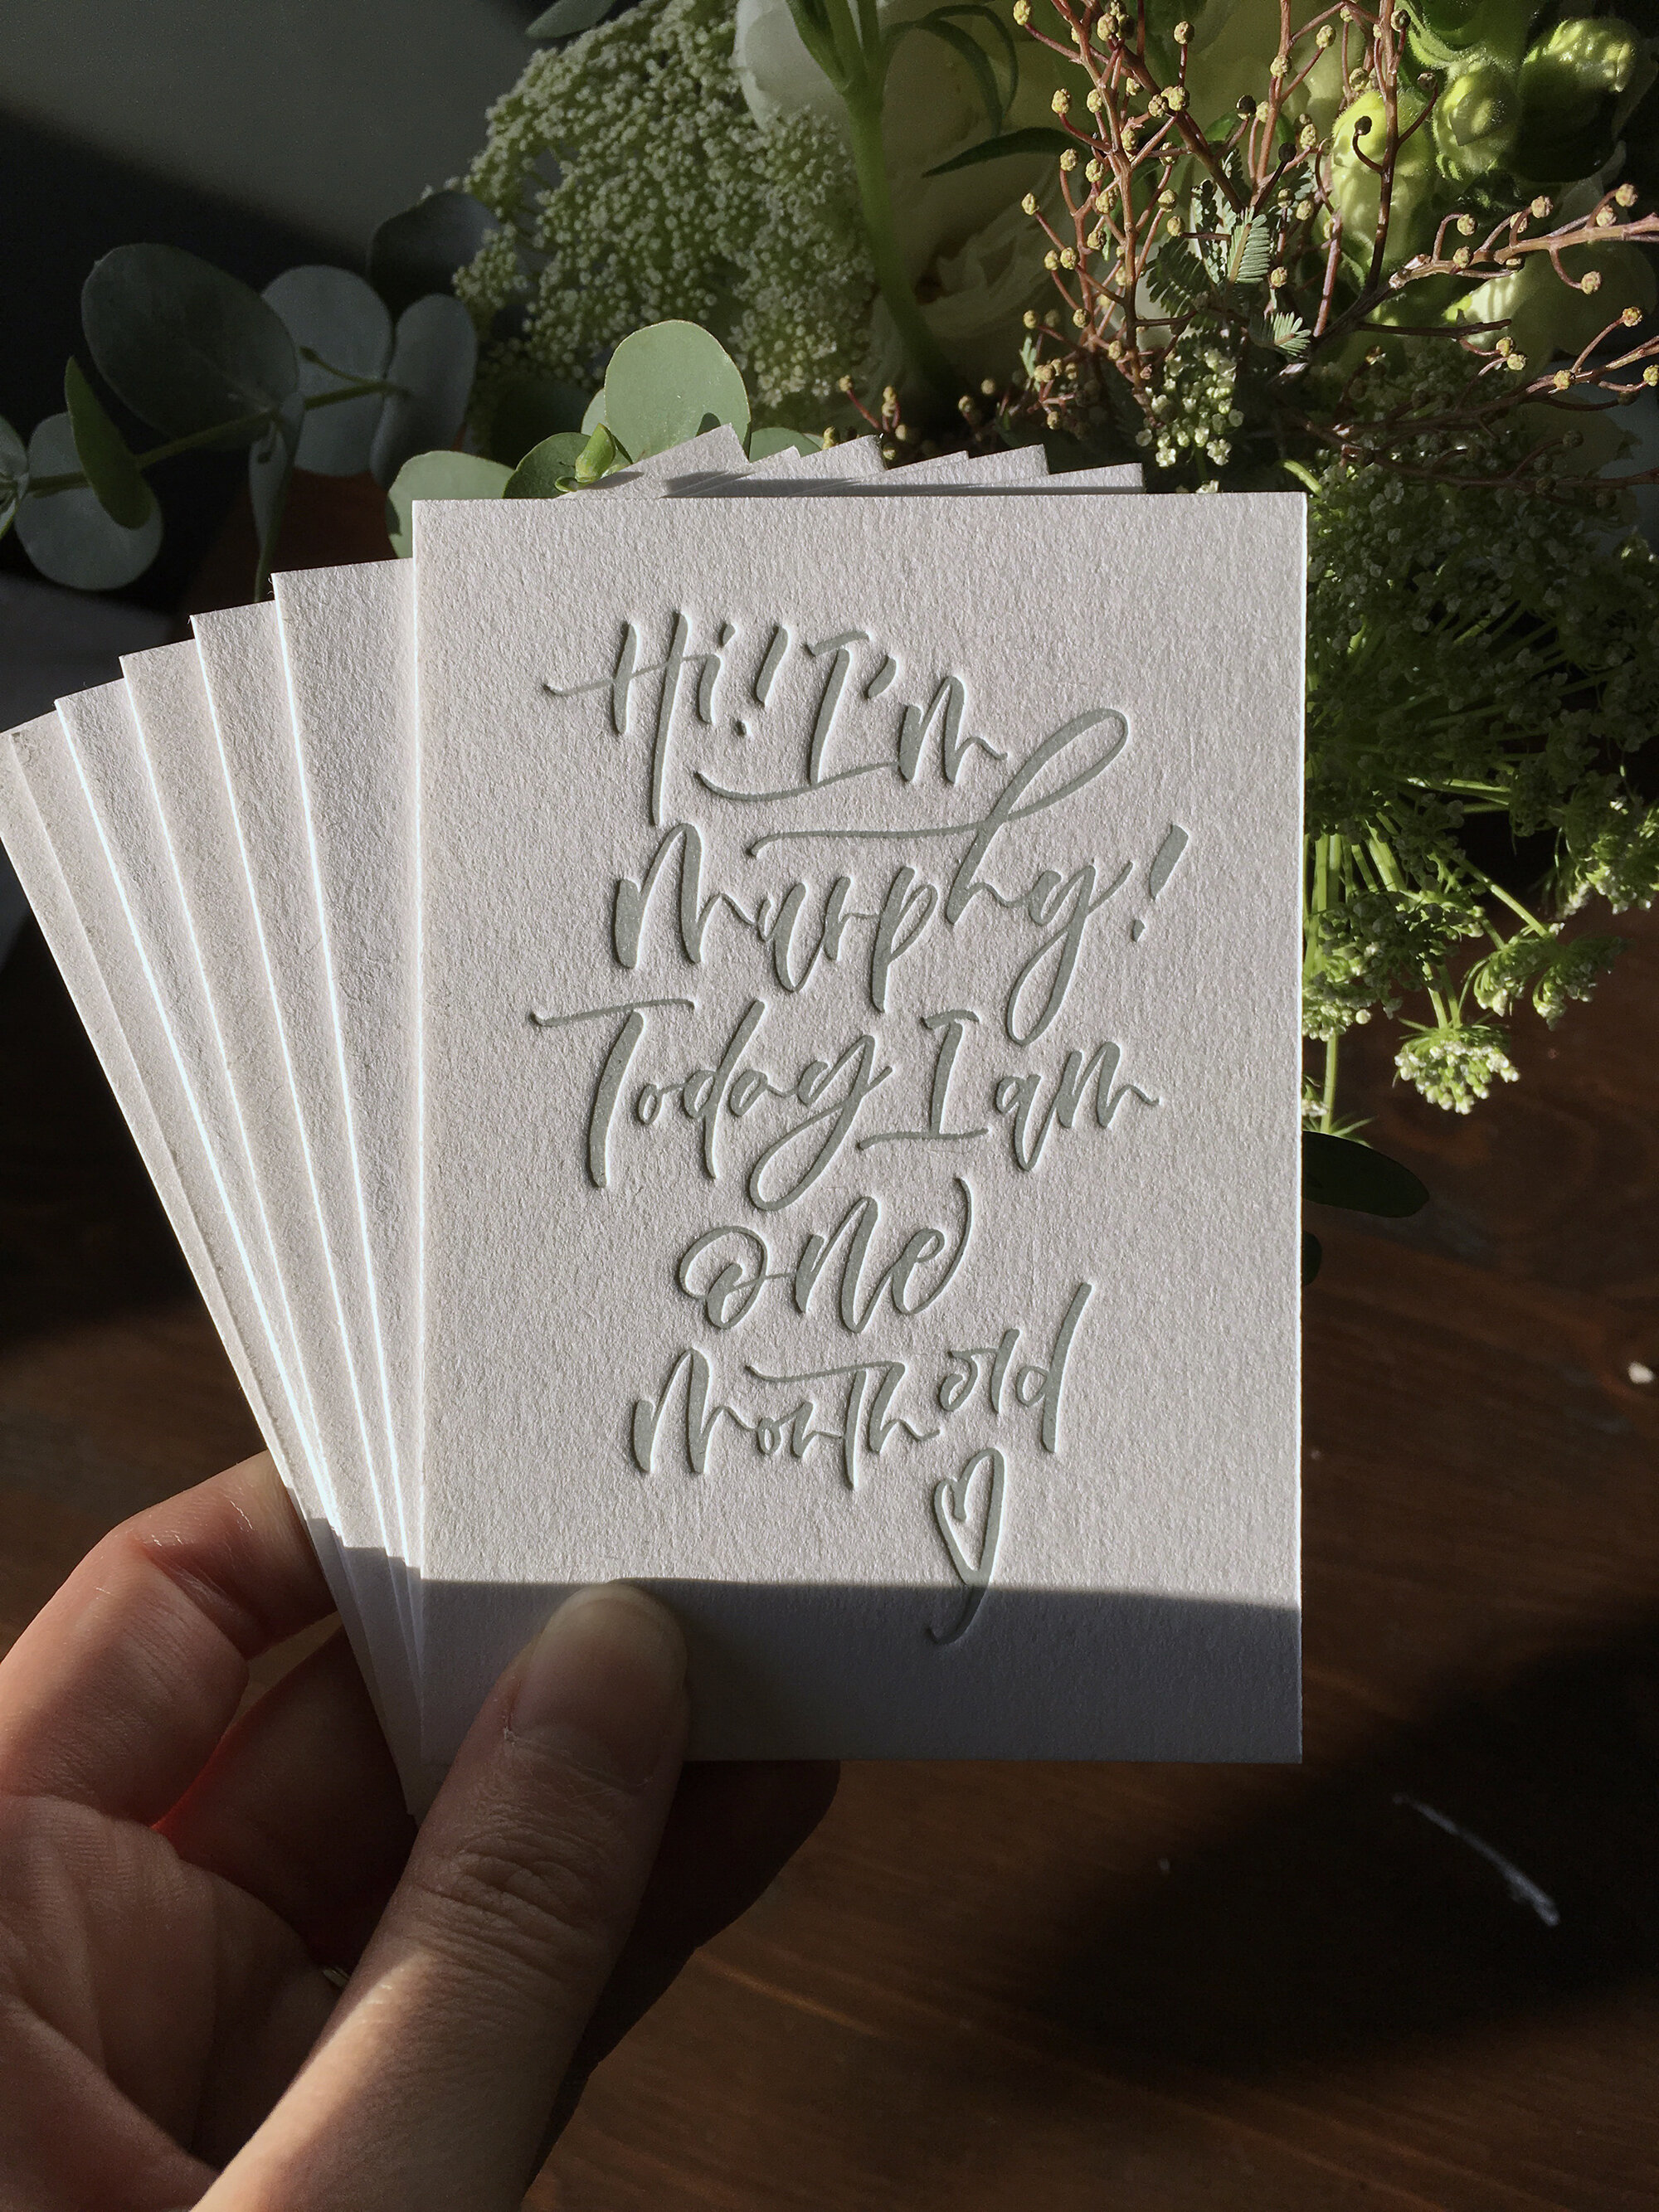 Hi! I'm
Murphy!
Today I am
one
Month old